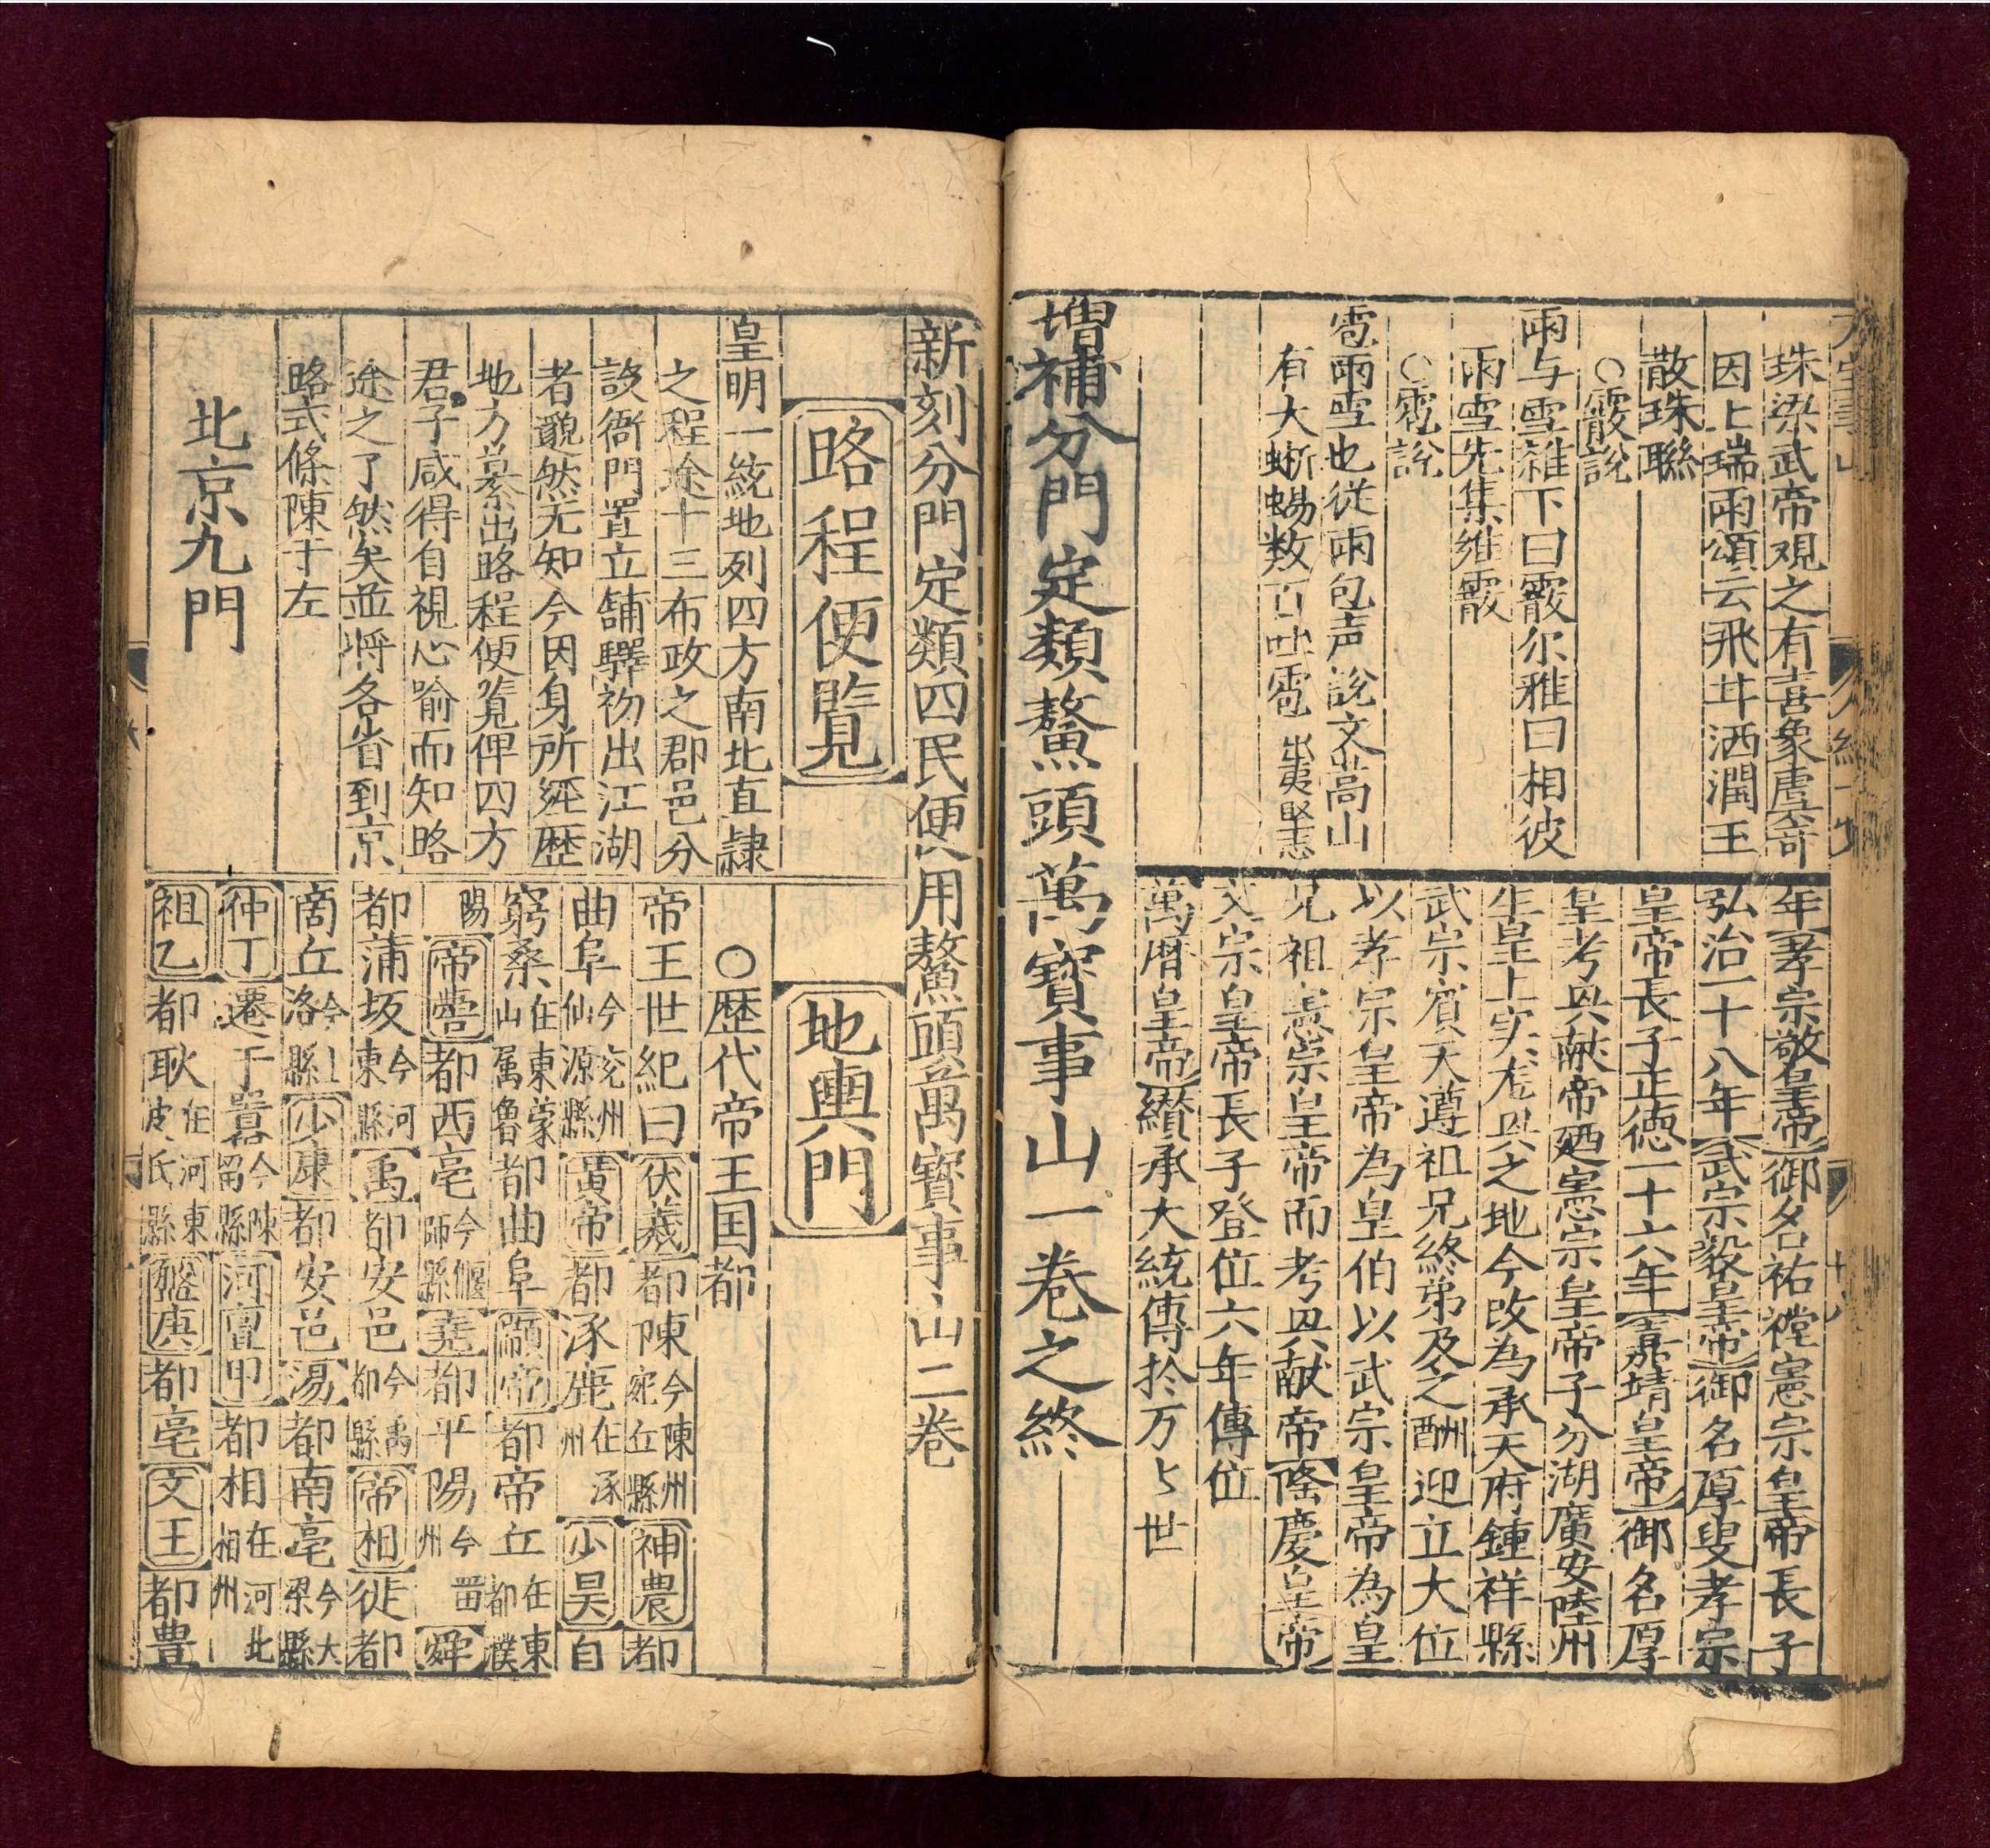 珠梁武帝观之有喜象虞寄
因上瑞雨頌云飛甘洒潤玉
散珠聯
○霰說
雨与雪雜下曰霰尔雅曰相彼
雨雪先集維霰
○雹說
雹雨雪也従雨包声說文蒿山
有大蜥蜴数百吐雹出夷堅志
年孝宗敬皇帝御名祐樘憲宗皇帝長子
弘治一十八年武宗毅皇帝御名厚叟孝宗
皇帝長子正德一十六年嘉靖皇帝御名厚
皇考興献帝廼憲宗皇帝子分湖廣安陸州
生皇上实龙興之地今改為承天府鍾祥縣
武宗賓天遵祖兄終弟及之酬迎立大位
以孝宗皇帝為皇伯以武宗皇帝為皇
兄祖憲宗皇帝而考興献帝隆慶皇帝
文宗皇帝長子登位六年傳位
萬暦皇帝纉承大統傳扵万〻世
增補分門定類鰲頭萬寶事山一卷之終
新刻分門定類四民便用鰲頭萬寶事山二卷
路程便覧
皇明一統地列四方南北直隷
之程途十三布政之郡邑分
設衙門置立舖驛初出江湖
者藐然无知今因身所經歴
地方纂出路程便覧俾四方
君子咸得自視心喻而知路
途之了然矣並将各省到京
路式條陳于左
北京九門
地輿門
○歴代帝王国都
帝王世紀曰伏羲都陳今陳州宛丘縣神農都
曲阜今兖州仙源縣黄帝都涿鹿在涿州少昊自
窮桑在東蒙山属魯都曲阜顓帝都帝丘在東都濮
陽帝嚳都西亳今偃師縣堯都平陽今晋州舜
都蒲坂今河東縣禹都安邑今禹都縣帝相徙都
商丘今上洛縣少康都安邑湯都南亳今大梁縣
仲丁遷于囂今陳留縣河亶甲都相在河北相州
祖乙都耿在河東皮氏縣盤庚都亳文王都豊